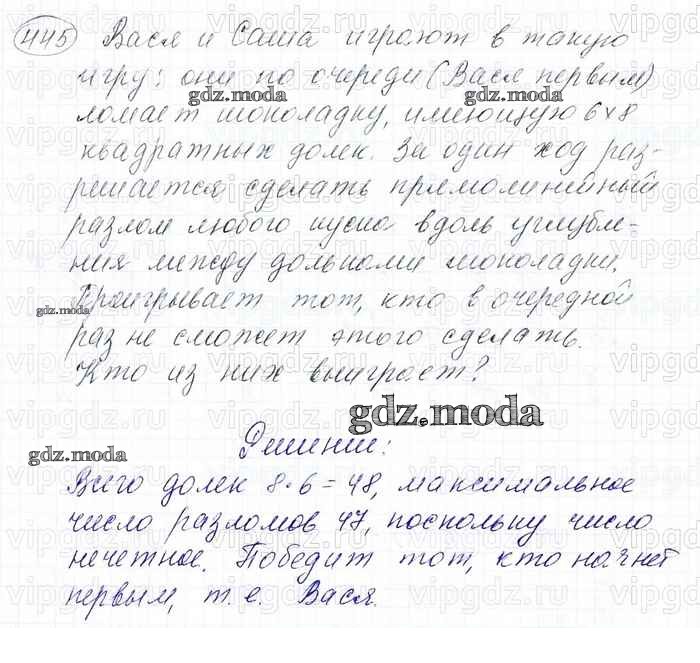 445 Вася и Саша играют в такую
игру: они по очереди (Вася первым)
gdz.moda gdz.moda
ломает шоколадку, имеющую 6х8
квадратных долек. За один ход раз-
решается сделать прямолинейный
разлом любого куска вдоль углубле-
ния между дольками шоколадки.
gdz.moda
Проигрывает тот, кто в очередной
раз не сможет этого сделать.
Кто из них выиграет?
gdz.moda
Решение:
gdz.moda
Всего долек 8·6=48, максимальное
число разломов 47, поскольку число
нечетное. Победит тот, кто начнет
первым, т.е. Вася.